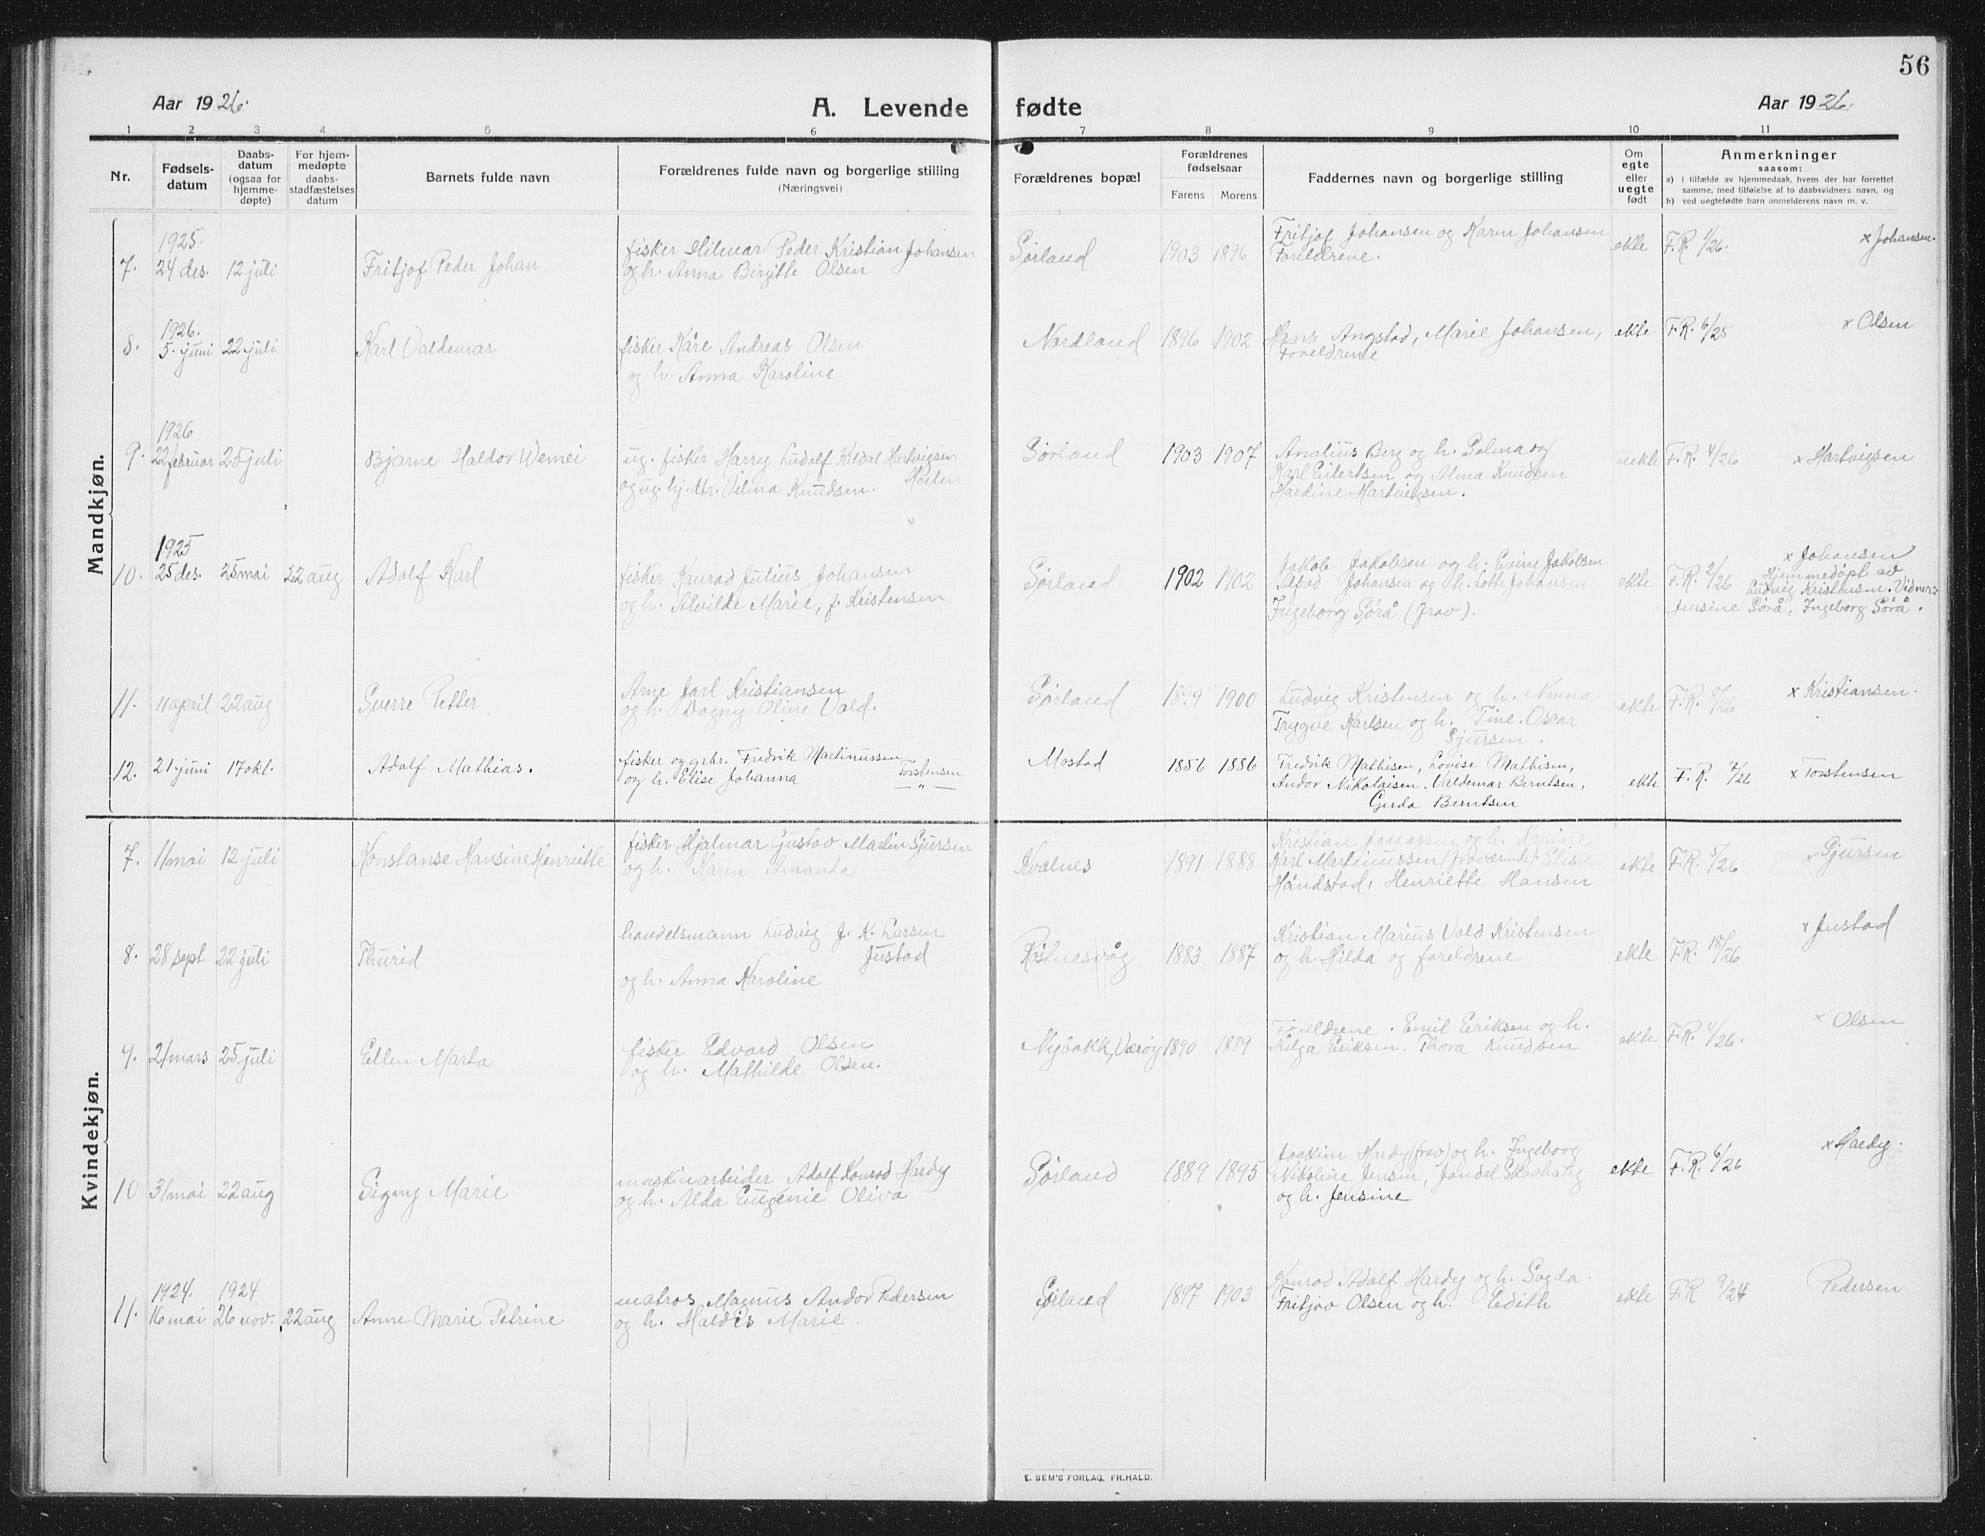 56
Aar 1926.
A. Levende fødte
Aar 1926.
1 2 3 4 5 6 7 8 9 10 11
Nr.
Fødsels-
datum
Daabs-
datum
(ogsaa for
hjemme-
døpte)
For hjem-
medøpte
daabs-
stadfæstelses
datum
Barnets fulde navn
Forældrenes fulde navn og borgerlige stilling
(Næringsvei)
Forældrenes bopæl
Forældrenes
fødselsaar
Farens Morens
Faddernes navn og borgerlige stilling
Om
egte
eller
uegte
født
Anmerkninger
saasom:
a) i tilfælde av hjemmedaab, hvem der har forrettet
samme, med tilføielse af to daabsvidners navn, og
b) ved uegtefødte barn anmelderens navn m. v.
Mandkjøn.
1925.
7. 24 des. 12 juli
Fritjof Peder Johan
fisker Hilmar Peder Kristian Johansen
og h. Anna Birgitte Olsen
Sørland
1903 1896
Fritjof Johansen og Karen Johansen
Foreldrene.
ekte
F.R. 1/26.
x Johansen.
1926.
8. 5. juni 22 juli
Karl Valdemar
fisker Kåre Andreas Olsen
og h. Anna Karoline
Nordland
1896 1902
Hans Angstad, Marie Johansen,
Foreldrene
ekte
F.R. 6/25
x Olsen
1926
9. 22 februar 25 juli
Bjarne Haldor Wernei
ug. fisker Harry Ludolf Kildal Hartvigsen
og ug. hj. dtr. Velma Knudsen.
Sørland
1903 1907
Analius Berg og h. Selma og
Karl Eilertsen og Alma Knudsen
Hardine Hartvigsen.
uekte
F.R. 4/26
x Hartvigsen
1925
10. 25 des. 25 mai 22 aug
Adolf Karl
fisker Konrad Julius Johansen
og h. Alvilde Marie, f. Kristensen
Sørland
1902 1902
Jakob Jakobsen og h. Evine Jakobsen
Alfred Johansen og h. Lotte Johansen
Ingeborg Sørå (frav).
ekte
F.R. 2/26
x Johansen
Hjemmedøpt av
Ludvig Kristensen. Vidner:
Jensine Sørå, Ingeborg Sørå.
11. 11 april 22 aug
Sverre Petter
Arne Jarl Kristiansen
og h. Dagny Oline Vald.
Sørland
1899 1900
Ludvig Kristensen og h. Nanna
Trygve Karlsen og h. Tine. Oscar
Sjursen.
ekte
F.R. 8/26
x Kristiansen.
12. 21 juni 17 okt.
Adolf Mathias.
fisker og grbr. Fredrik Martinussen
og h. Elise Johanna Torstensen
— „ —
Mostad
1886 1886
Fredrik Mathisen, Lovise Mathisen,
Andor Nikolaisen. Valdemar Berntsen,
Gerda Berntsen
ekte
F. R. 7/26
x Torstensen
Kvindekjøn.
7. 11 mai 12 juli
Konstanse Hansine Henriette
fisker Hjalmar Gustav Martin Sjursen
og h. Karen Amanda
Kvalnes
1891 1888
Kristian Jonassen og h. Karine
Karl Martinussen (fraværende). Elise
Håndstad, Henriette Hansen
ekte
F.R. 5/26
x Sjursen
8. 28 sept 22 juli
Thurid
handelsmann Ludvig J. K. Larsen
Justad
og h. Anna Karoline
Røstnesvåg
1883 1887
Kristian Marius Vald Kristensen
og h. Hilda og foreldrene
ekte
F.R. 18/26
x Justad
9. 21 mars 25 juli
Ellen Marta
fisker Edvard Olsen
og h. Mathilde Olsen.
Nybakk, Værøy
1890 1889
Foreldrene. Emil Eriksen og h.
Helga Eriksen. Thora Knudsen
ekte
F.R. 4/26.
x Olsen
10 31 mai 22 aug
Signy Marie
maskinarbeider Adolf Konrad Hardy
og h. Alda Eugenie Oliva
Sørland
1889 1895
Joakim Hardy (frav) og h. Ingeborg
Nikoline Jensen, Jondal Skavhaug
og h. Jensine
ekte
F.R. 6/26
x Hardy.
1924. 1924
11. 16 mai 26 nov. 22 aug
Anne Marie Petrine
matros Magnus Andor Pedersen
og h. Haldis Marie.
Sørland
1897 1903
Konrad Adolf Hardy og h. Sagda.
Fritjov Olsen og h. Edith
ekte
F.R 9/24
Pedersen
E. SEM'S FORLAG, FR.HALD.